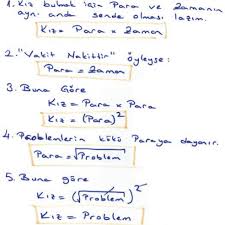 1. Kız bulmak için Para ve Zamanın
aynı anda sende olması lazım.
Kız = Para x Zaman
2. "Vakit Nakittir" Öyleyse:
Para = Zaman
3. Buna Göre
Kız = Para x Para
Kız = (Para)²
4. Problemlerin kökü Paraya dayanır.
Para = √Problem
5. Buna göre
Kız = (√Problem)²
Kız = Problem